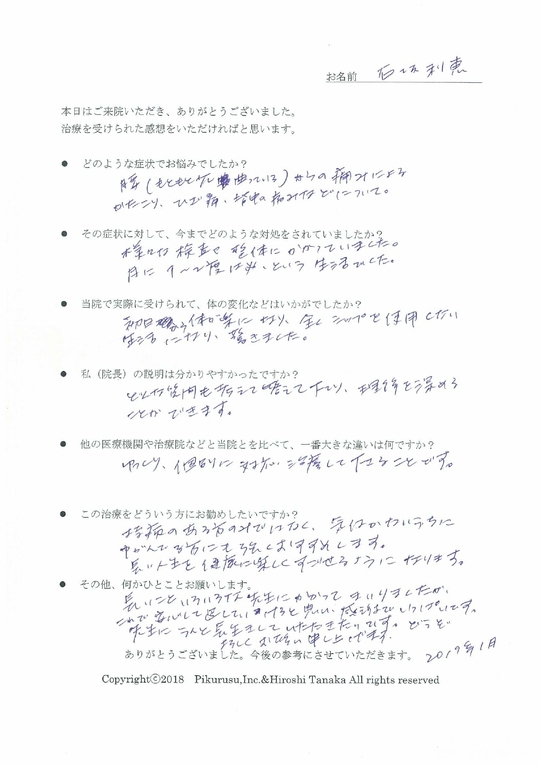 お名前 石坂利恵
本日はご来院いただき、ありがとうございました。
治療を受けられた感想をいただければと思います。
● どのような症状でお悩みでしたか？
腰（もともと 曲っている）からの痛みによる
かたこり、ひざ痛、背中の痛みなどについて。
● その症状に対して、今までどのような対処をされていましたか？
様々な検査や整体にかかっていました。
月に1～2度は必ずという生活でした。
● 当院で実際に受けられて、体の変化などはいかがでしたか？
初日から体が楽になり、全くシップを使用しない
生活になり、驚きました。
● 私（院長）の説明は分かりやすかったですか？
どんな質問も答えて下さり、理解を深める
ことができます。
● 他の医療機関や治療院などと当院とを比べて、一番大きな違いは何ですか？
ゆっくり、個別に対応、治療して下さることです。
● この治療をどういう方にお勧めしたいですか？
持病のある方のみではなく、気付かないうちに
ゆがんでる方にも強くおすすめします。
長い人生を健康に楽しくすごせるようになります。
● その他、何かひとことお願いします。
長いこといろいろな先生にかかってまいりましたが、
これで安心して していけると思い感謝でいっぱいです。
先生にうんと長生きしていただきたいです。どうぞ
よろしくお願い申し上げます。
ありがとうございました。今後の参考にさせていただきます。 2019年1月
Copyrightⓒ2018 Pikurusu,Inc.&Hiroshi Tanaka All rights reserved